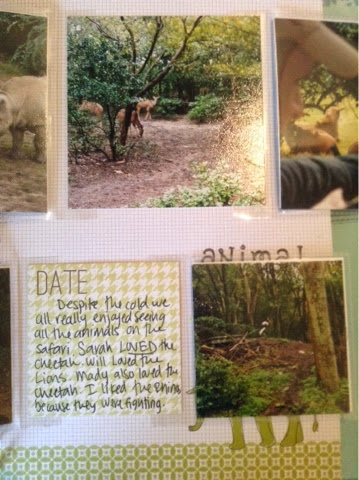 animal
DATE
Despite the cold we
all really enjoyed seeing
all the animals on the
safari. Sarah LOVED the
cheetah. Will loved the
Lions. Mady also loved the
cheetah. I liked the Rhino
because they were fighting.